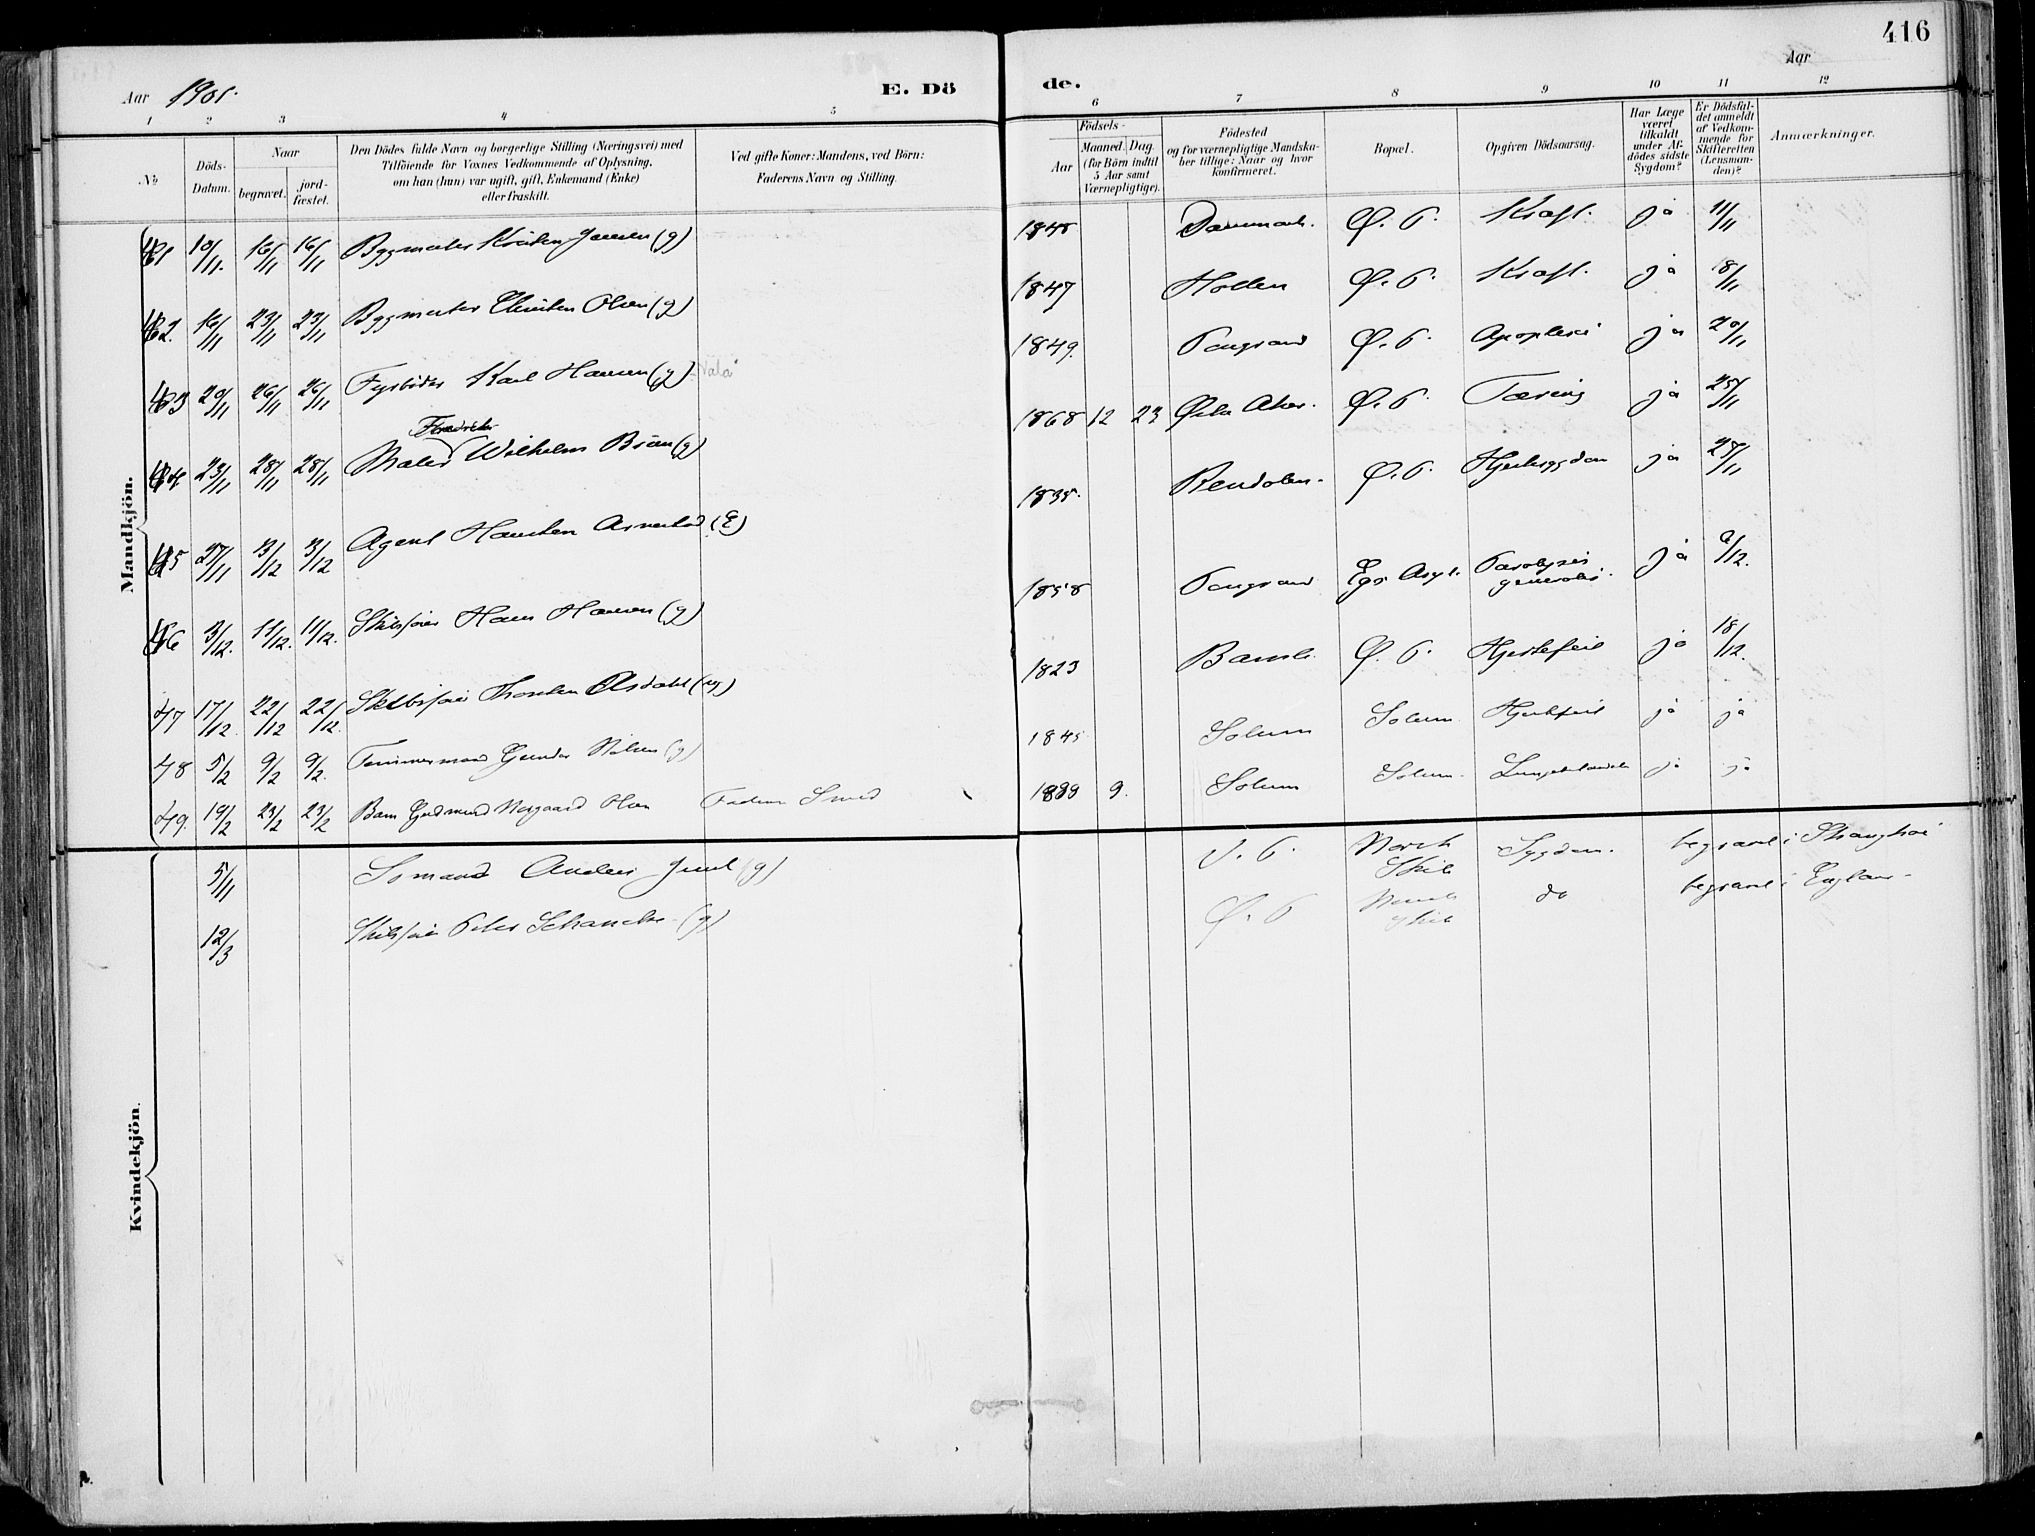 416
Aar 1901.
E. Dö
de.
Aar
1 2 3 4 5 6 7 8 9 10 11 12
No
Döds-Datum.
Naar
begravet.
jord-fæstet.
Den Dödes fulde Navn og borgerlige Stilling (Næringsvei) med
Tilföiende for Voxnes Vedkommende af Oplysning,
om han (hun) var ugift, gift, Enkemand (Enke)
eller fraskilt.
Ved gifte Koner: Mandens, ved Börn:
Faderens Navn og Stilling.
Födsels-
Aar
Maaned. Dag.
(for Börn indtil
5 Aar samt
Værnepligtige).
Födested
og for værnepligtige Mandska-
ber tillige: Naar og hvor
konfirmeret.
Bopæl.
Opgiven Dödsaarsag.
Har Læge
været
tilkaldt
under Af-
dödes sidste
Sygdom?
Er Dödsfal-
det anmeldt
af Vedkom-
mende for
Skifteretten
(Lensman-
den)?
Anmærkninger.
Mandkjön.
41 10/11. 16/11 16/11 Bygmester Kristen Jensen (g) 1848 Danmark. Ø. P. Kræft. ja 11/11
42. 16/11 23/11 23/11 Bygmester Christen Olsen (g) 1847 Hollen Ø. P. Kræft. ja 18/11
43 20/11 26/11 26/11 Fyrbøder Karl Hansen (g) 1849. Pougrund Ø. P. Apoplexi ja 20/11
44. 23/11 28/11 28/11 Maler Fredrik Wilhelm Bruun (g) 1868 12 23 Aker. Ø. P. Tæring ja 25/11
45 27/11 3/12 3/12 Agent (E) 1835. Ø. P. Hjertesygdom ja 28/11
46 3/12. 11/12. 11/12. Skibsfører Hans Hansen (g) 1858 Asyl. Paralysis generalis. ja /12.
47 17/12 22/12 22/12. Skibsfører Thorsten Aasdahl (ug) 1823 Bamle. Ø. P. Hjertefeil ja 18/12.
48 5/2 9/2 9/2. Tømmermand Gunder Nilsen (g) 1845 Solum Solum Hjertefeil ja ja
49. 19/2 23/2 23/2 Barn Gudmund Olsen 1899 9. Solum Solum. ja ja
5/11 Sømand Anders Juul (g) Ø. P. Norsk Skib Sygdom. begravet i Shanghai
12/3 Skibsfører Peter Schancke (g) Ø. P. Norsk Skib do begravet i England
Kvindekjön.